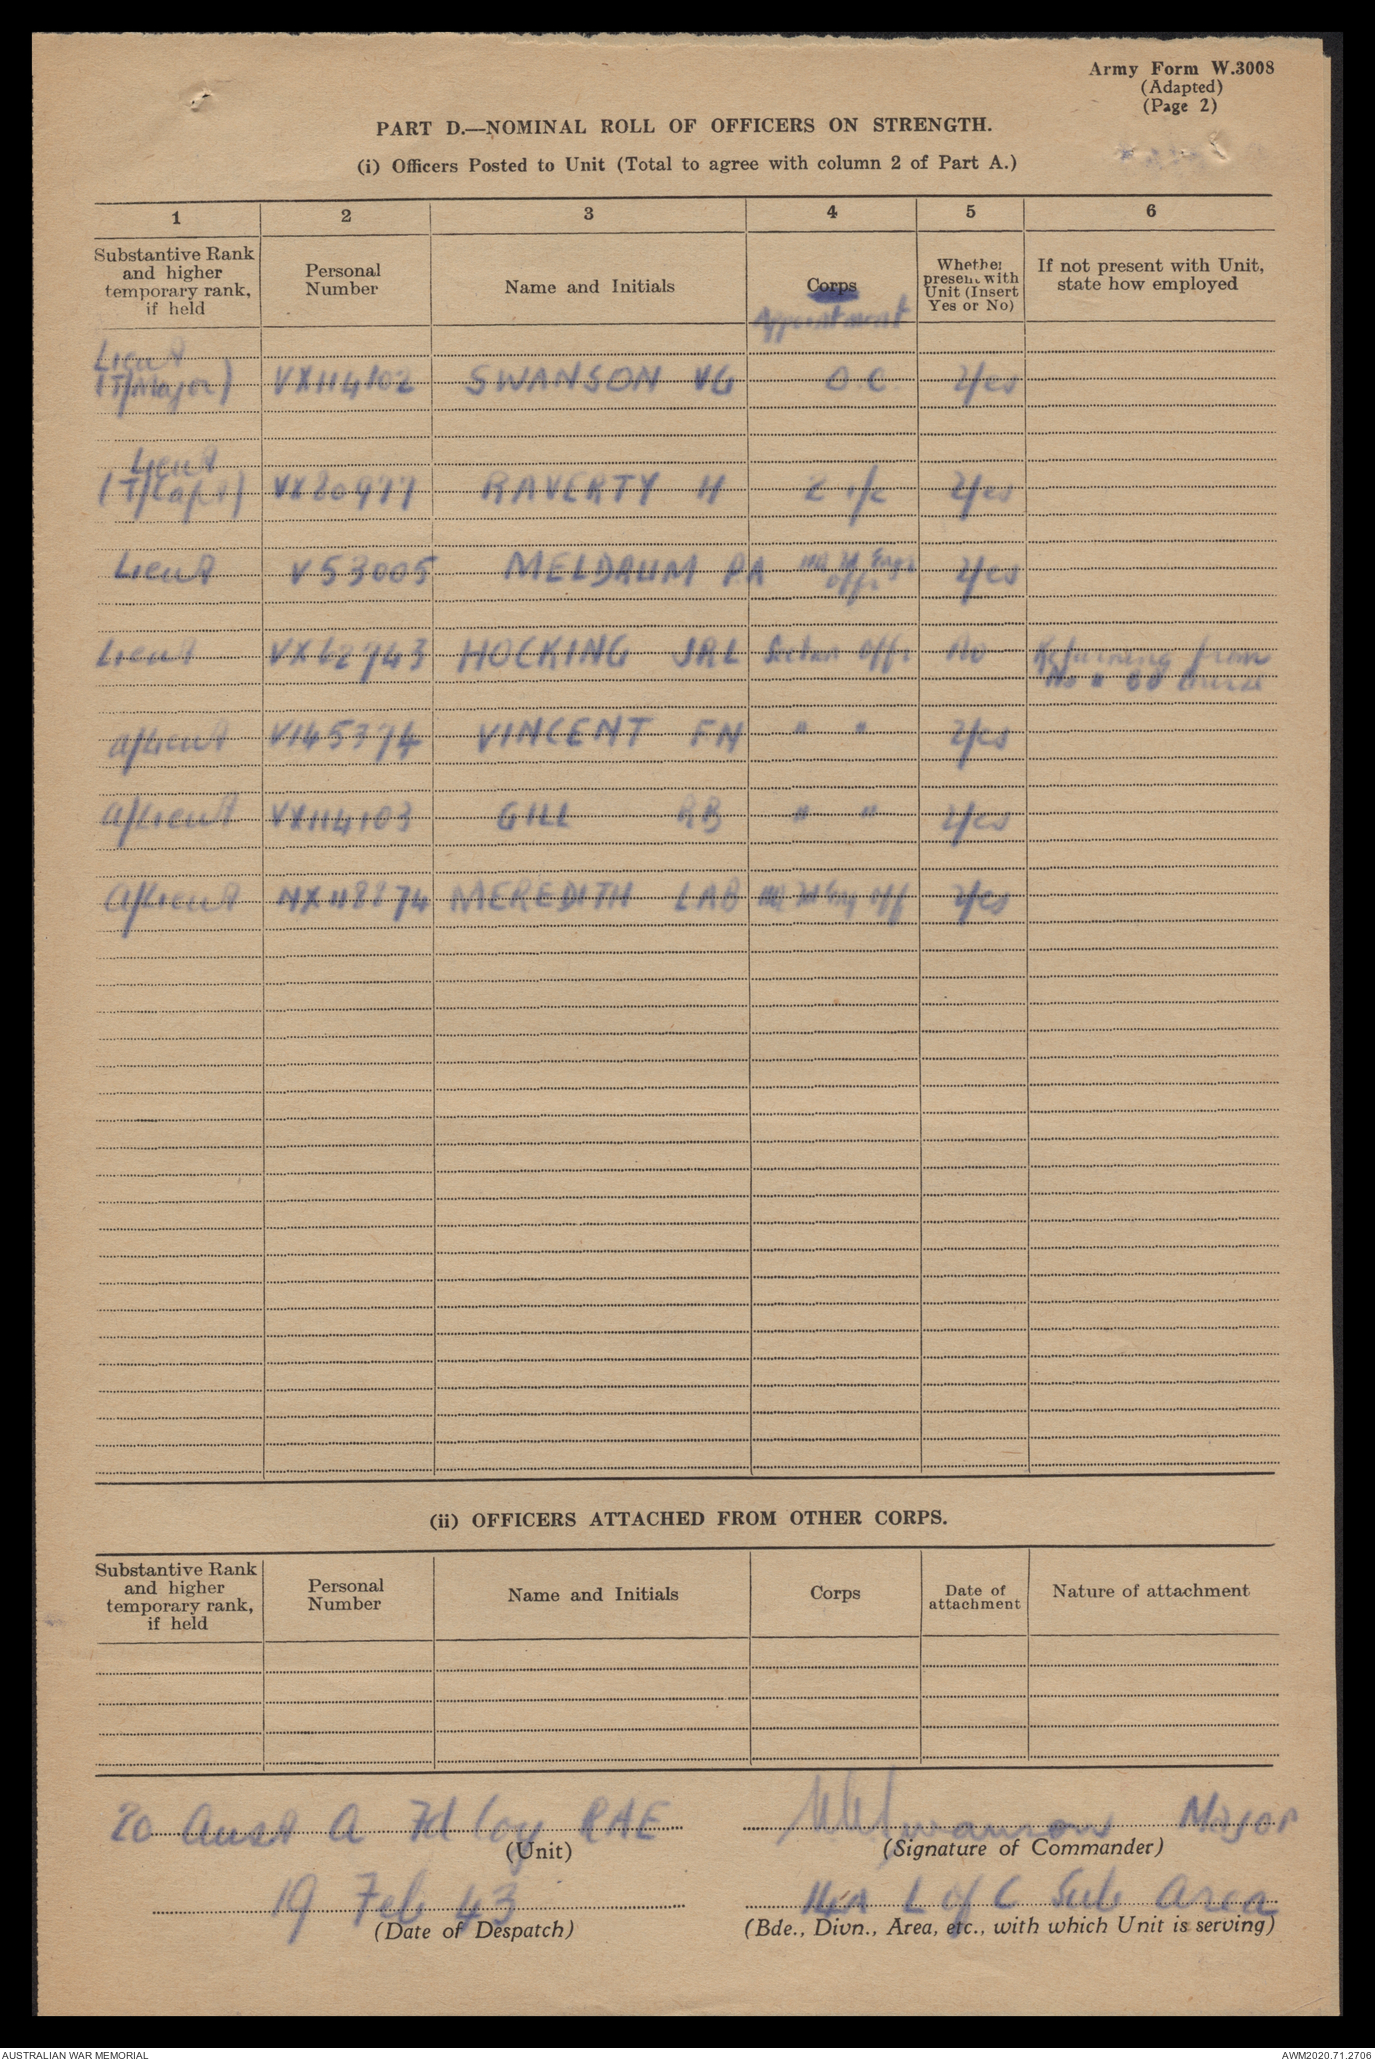 Army Form W.3008
(Adapted)
(Page 2)
PART D.—NOMINAL ROLL OF OFFICERS ON STRENGTH.
(i) Officers Posted to Unit (Total to agree with column 2 of Part A.)
1 2 3 4 5 6
Substantive Rank and higher temporary rank, if held
Personal Number
Name and Initials
Corps
Appointment
Whether present with Unit (Insert Yes or No)
If not present with Unit, state how employed
Lieut
(T/Major) VX114102 SWANSON VG O.C. Yes
Lieut
(T/Capt) VX20977 RAVERTY H 2 i/c Yes
Lieut V53005 MELDRUM PA HQ Fd Engr Offr Yes
Lieut VX62743 HOCKING JRL Section Offr No Returning from
course
a/Lieut V145374 VINCENT FN " " Yes
a/Lieut VX114103 GILL RB " " Yes
a/Lieut NX118874 MEREDITH LAB HQ Fd Eng Off Yes
(ii) OFFICERS ATTACHED FROM OTHER CORPS.
Substantive Rank and higher temporary rank, if held
Personal Number
Name and Initials
Corps
Date of attachment
Nature of attachment
20 Aust A Fd Coy RAE
(Unit)
Swanson Major
(Signature of Commander)
19 Feb 43
(Date of Despatch)
L of C Sub Area
(Bde., Divn., Area, etc., with which Unit is serving)
AUSTRALIAN WAR MEMORIAL
AWM2020.71.2706